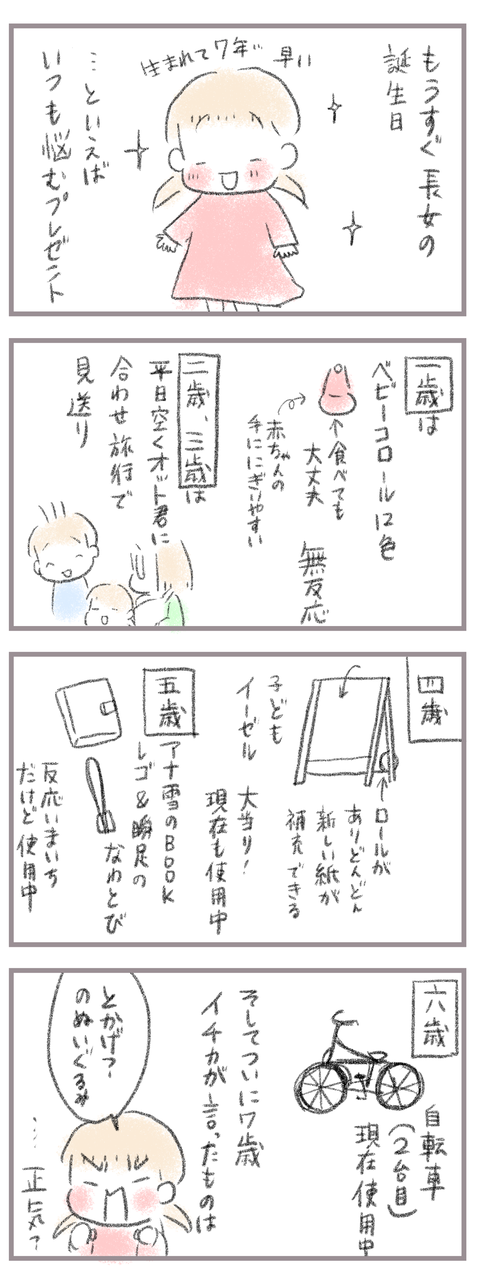 もうすぐ長女の
誕生日
早い
生まれて7年…
…といえば
いつも悩むプレゼント
一歳は
ベビーコロール12色
↑食べても
大丈夫
赤ちゃんの
手ににぎいやすい
無反応
二歳、三歳は
平日空くオット君に
合わせ旅行で
見送り
四歳
↑ロールが
ありどんどん
新しい紙が
補充できる
子ども
イーゼル
大当り!
現在も使用中
五歳
アナ雪のBook
レゴ&瞬足の
なわとび
反応いまいち
だけど使用中
六歳
自転車
(2台目)
現在使用中
そしてついに7歳
イチカが言ったものは
とかげ〜
のぬいぐるみ
…正気?